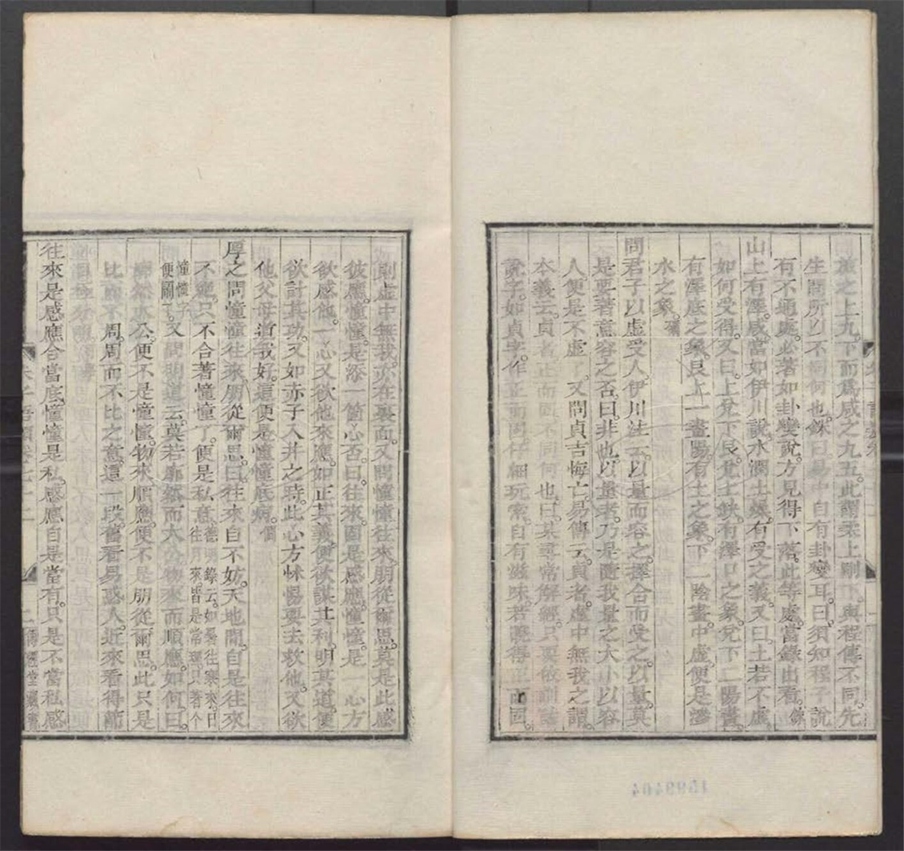 旅之上九下而為咸之九五此謂柔上剛下與程傳不同先
生問所以不同何也銖曰易中自有卦變耳曰須知程子說
有不通處必著如卦變說方見得下落此等處當錄出看銖
山上有澤咸當如伊川說水潤土燥有受之義又曰土若不虛
如何受得又曰上兌下艮兌上缺有澤口之象兌下二陽畫
有澤底之象艮上一畫陽有土之象下二陰畫中虛便是滲
水之象𤩪
問君子以虛受人伊川注云以量而容之擇合而受之以量莫
是要著意容之否曰非也以量者乃是隨我量之大小以容
人便是不虛了又問貞吉悔亡易傳云貞者虛中無我之謂
本義云貞者正而固不同何也曰某尋常解經只要依訓詁
說字如貞字作正而固仔細玩索自有滋味若曉得正而固
則虛中無我亦在裏面又問憧憧往來朋從爾思莫是此感
彼應憧憧是添一箇心否曰往來固是感應憧憧是一心方
欲感他一心又欲他來應如正其義便欲謀其利明其道便
欲計其功又如赤子入井之時此心方怵惕要去救他又欲
他父母道我好這便是憧憧底病僩
厚之問憧憧往來朋從爾思曰往來自不妨天地間自是往來
不絕只不合著憧憧了便是私意德明錄云如暑往寒來日往月來皆是常理只著个憧憧字便鬧了又問明道云莫若廓然而大公物來而順應如何曰
廓然大公便不是憧憧物來順應便不是朋從爾思此只是
比而不周周而不比之意這一段舊看易惑人近來看得節
往來是感應合當底憧憧是私感應自是當有只是不當私感
朱子語類卷七十二
二
傳經堂藏書
1599404